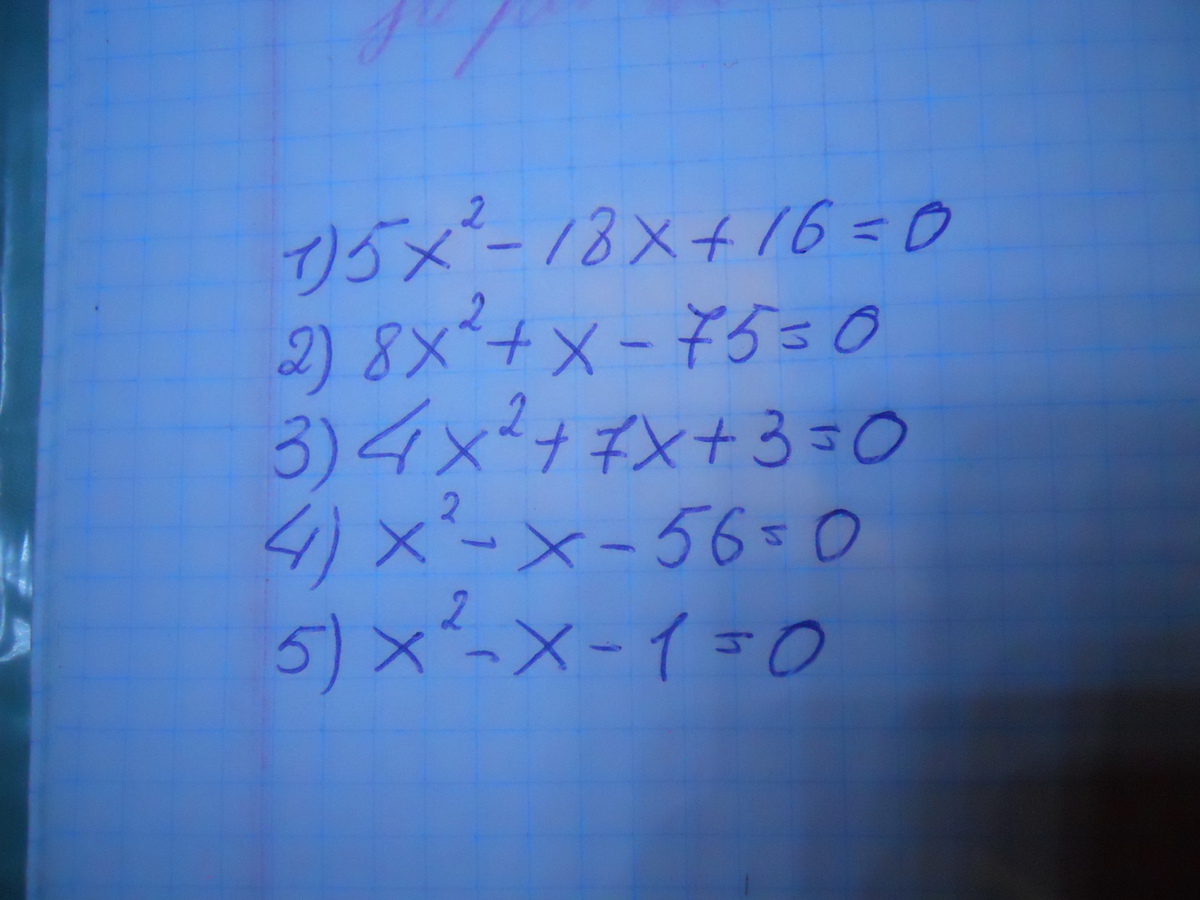 1) 5x² - 18x + 16 = 0
2) 8x² + x - 75 = 0
3) 4x² + 7x + 3 = 0
4) x² - x - 56 = 0
5) x² - x - 1 = 0